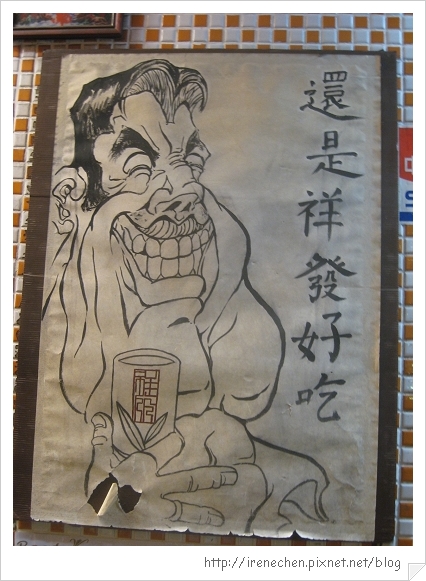 還是祥發好吃
祥發
http://irenechen.pixnet.net/blog